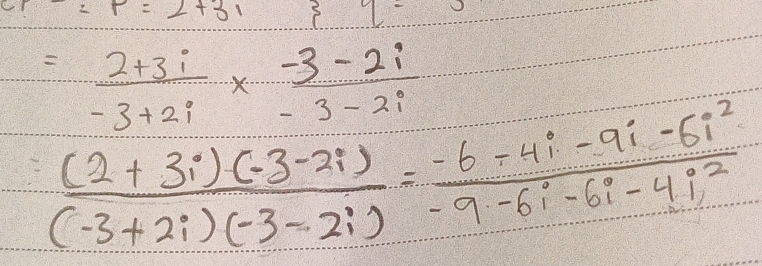 P = 2+3i } q =
= 2+3i / -3+2i × -3-2i / -3-2i
(2+3i)(-3-2i) / (-3+2i)(-3-2i) = -6-4i-9i-6i² / -9-6i-6i-4i²